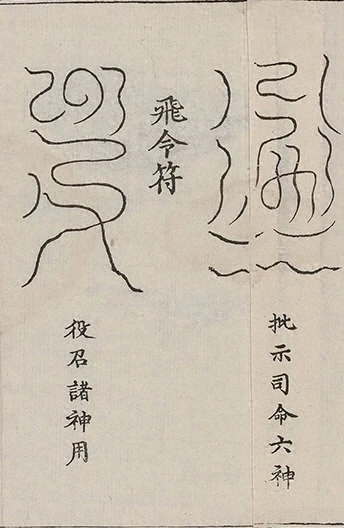 批示司命六神
飛令符
役召諸神用